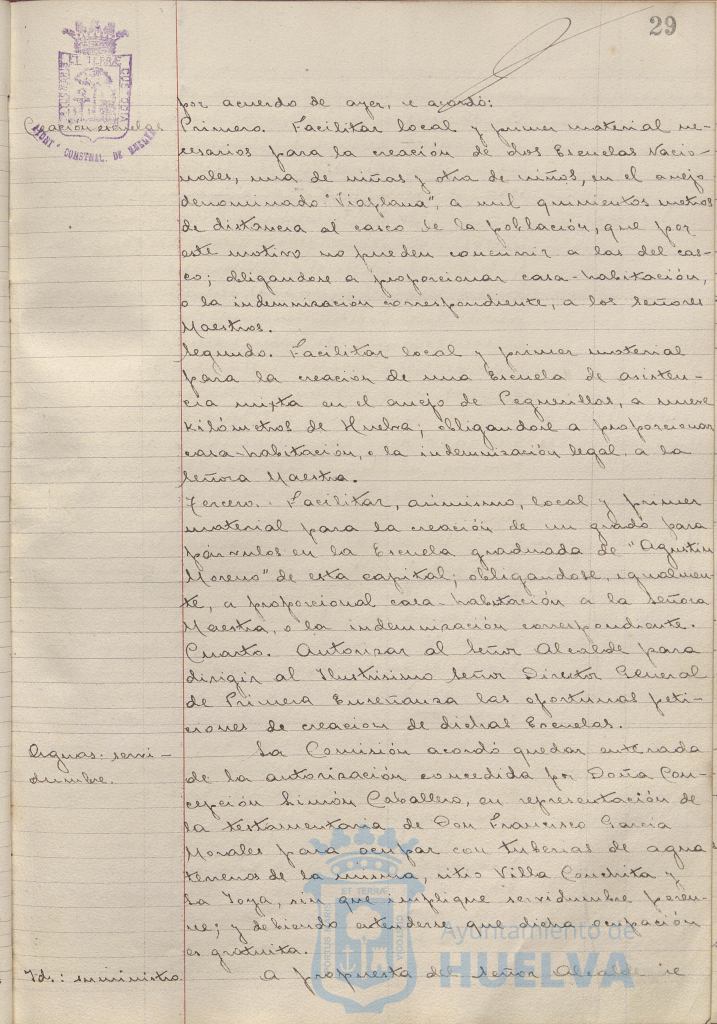 29
por acuerdo de ayer, se acordó:
Creación escuelas
Primero. Facilitar local y primer material ne-
cesarios para la creación de dos Escuelas Nacio-
nales, una de niñas y otra de niños, en el anejo
denominado "Viaplana", a mil quinientos metros
de distancia al casco de la población, que por
este motivo no pueden concurrir a las del cas-
co; obligandose a proporcionar casa-habitación,
o la indemnización correspondiente, a los señores
Maestros.
Segundo. Facilitar local y primer material
para la creación de una Escuela de asisten-
cia mixta en el anejo de Peguerillas, a nueve
kilómetros de Huelva; obligandose a proporcionar
casa-habitación, o la indemnización legal, a la
Señora Maestra.
Tercero. Facilitar, asimismo, local y primer
material para la creación de un grado para
párvulos en la Escuela graduada de "Agustin
Moreno" de esta capital; obligandose, igualmen-
te, a proporcional casa-habitación a la Señora
Maestra, o la indemnización correspondiente.
Cuarto. Autorizar al Señor Alcalde para
dirigir al Ilustrisimo Señor Director General
de Primera Enseñanza las oportunas peti-
ciones de creación de dichas Escuelas.
Aguas: servi-
dumbre.
La Comisión acordó quedar enterada
de la autorización concedida por Doña Con-
cepción Limón Caballero, en representación de
la testamentaria de Don Francisco García
Morales para ocupar con tuberias de agua
terrenos de la misma, sitio Villa Conchita y
La Joya, sin que implique servidumbre peren-
ne; y debiendo entenderse que dicha ocupación
es gratuita.
Id.: suministro
A propuesta del Señor Alcalde se
ET TERRÆ
CUSTODIA
AYUNT.º CONSTNAL. DE HUELVA
PORTUS MARIS
ET TERRÆ
CUSTODIA
Ayuntamiento de
HUELVA